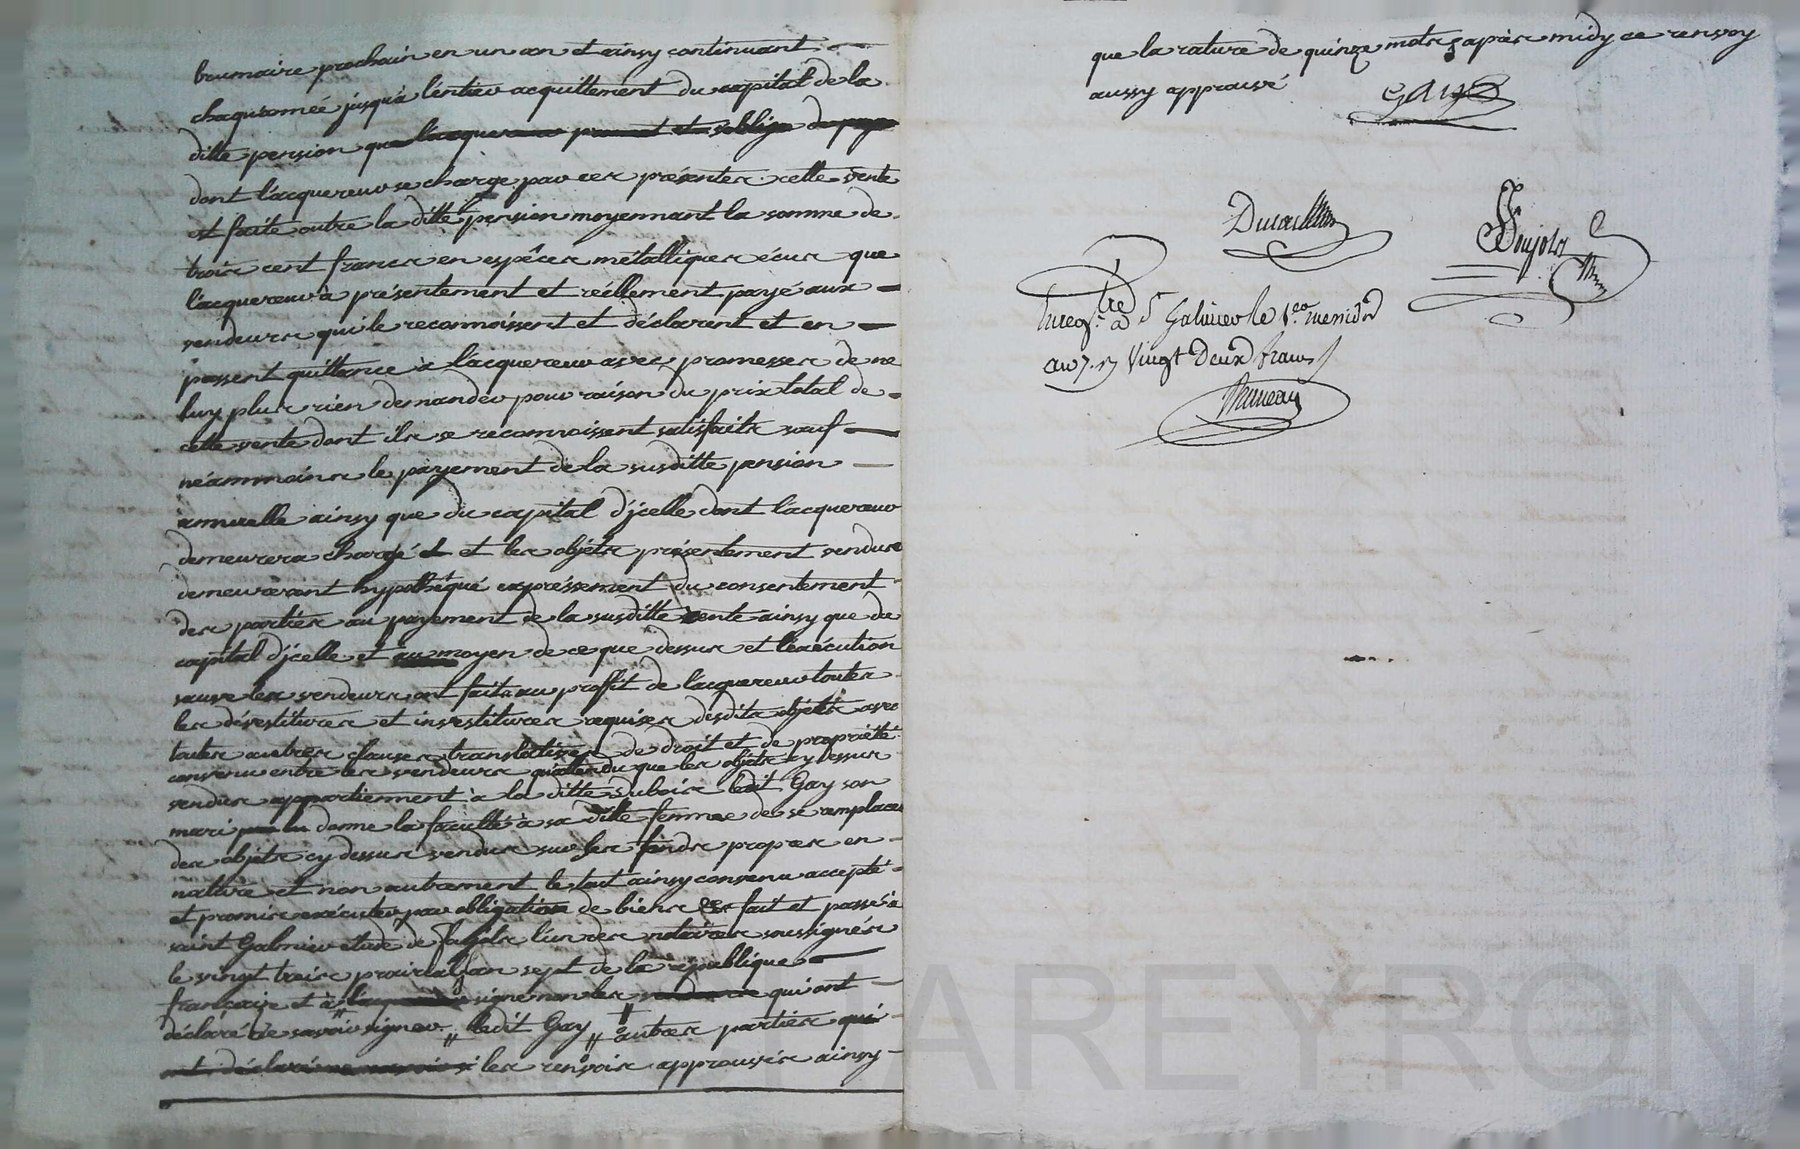 brumaire prochain en un an et ainsy continuant
chaqu'année jusqu'a lentier acquittement du capital de la
ditte pension que l'acquereur promet et s'oblige de paye
dont l'acquereur se charge par ces présentes. cette vente
est faite outre la ditte pension moyennant la somme de
trois cent francs en espêces métalliques écus que
l'acquereur à présentement et réellement payé aux
vendeurs qui le reconnoissent et déclarent et en
passent quittance à l'acquereur avec promesses de ne
luy plus rien demander pour raison du prix total de
cette vente dont ils se reconnoissent satisfaits sauf
néammoins le payement de la susditte pension
annuelle ainsy que du capital d'jcelle dont l'acquereur
demeurera chargé et les objéts présentement vendus
demeureront hypothéqué expréssement du consentement
des parties au payement de la susditte rente ainsy que du
capital d'jcelle et au moyen de ce que dessus et l'exécution
sauve les vendeurs ont fait au proffit de l'acquereur toutes
les dévestitures et investitures requises desdits objéts avec
toutes autres clauses translatives de droit et de propriété
convenu entre les vendeurs qu'attendu que les objéts cy dessus
vendus appartiennent à la ditte Dubois ledit Gay son
mari donne la faculté à sa ditte femme de se remplacer
des objéts cy dessus vendus sur ses fonds propres en
nature et non autrement le tout ainsy convenu accepté
et promis exécuter par obligation de biens fait et passé à
saint Galmier etude de Pujols l'un des notaires soussignés
le vingt trois prairial an sept de la république
françoise et à signé non les vendeurs qui ont
déclaré ne savoir signer. " ledit Gay " autres parties qui
ont déclaré ne savoir les renvois approuvés ainsy
que la rature de quinze mots aprés midy ce renvoy
aussy approuvé GAY
Pujols
Enreg.tré à S.t Galmier le 1.er messid.r
an 7. R vingt deux francs
PAREYRON